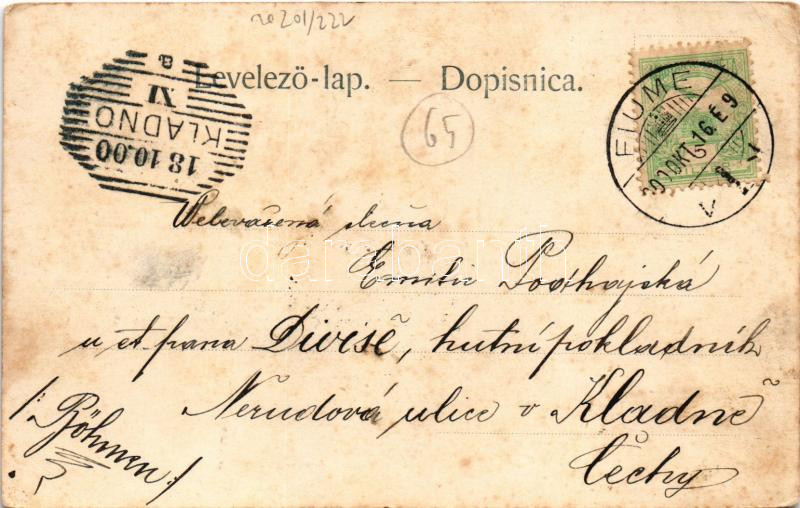 20201/222
Levelező-lap. — Dopisnica.
65
KLADNO
18 10.00
XI
a
FIUME
900 OKT. 16. É. 9
Velevážená slečna
Emilie Podhajská
u ct. pana Diviše, hutní pokladník
Nerudová ulice v Kladně
/: Böhmen :/
Čechy
darabanth